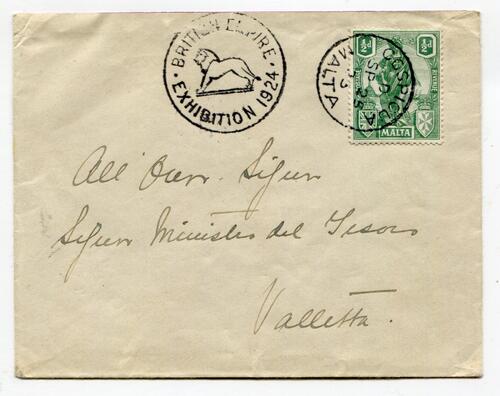 BRITISH EMPIRE
EXHIBITION 1924
COSPICUA
SP 25
23
MALTA
½d ½d
MALTA
All' Onor. Sigur
Sigur Ministro del Tesoro
Valletta.